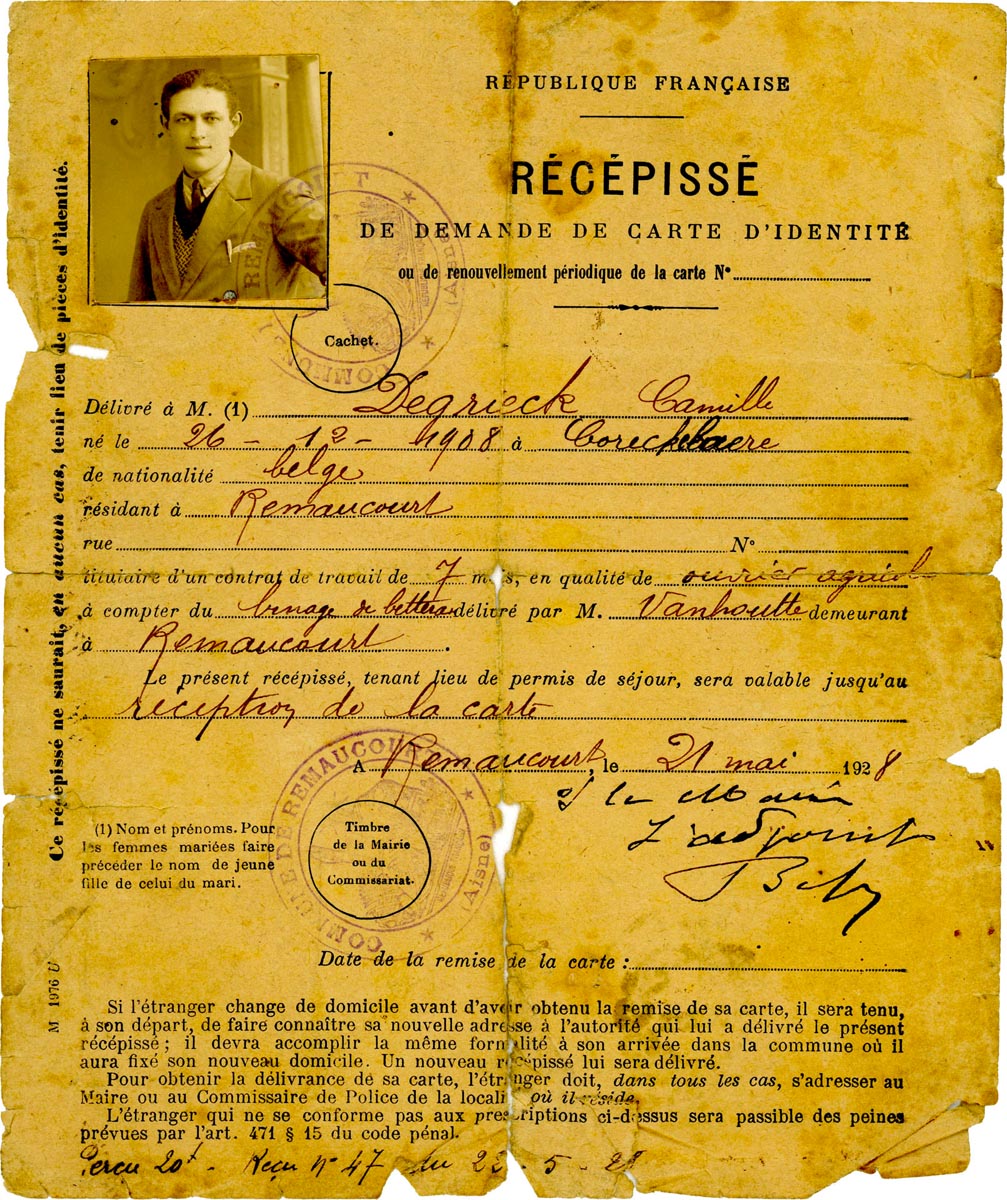 RÉPUBLIQUE FRANÇAISE
RÉCÉPISSÉ
DE DEMANDE DE CARTE D'IDENTITÉ
ou de renouvellement périodique de la carte N°
Cachet.
COMMUNE DE REMAUCOURT (Aisne)
Délivré à M. (1) Degrieck Camille
né le 26 - 12 - 1908 à
de nationalité belge
résidant à Remaucourt
rue N°
titulaire d'un contrat de travail de 7 mois, en qualité de ouvrier agricol
à compter du binage de bettera délivré par M. Vanhoutte demeurant
à Remaucourt.
Le présent récépissé, tenant lieu de permis de séjour, sera valable jusqu'au
réception de la carte
A Remaucourt, le 21 mai 1928
P le Maire
L'adjoint
(1) Nom et prénoms. Pour
les femmes mariées faire
précéder le nom de jeune
fille de celui du mari.
Timbre
de la Mairie
ou du
Commissariat.
COMMUNE DE REMAUCOURT (Aisne)
Date de la remise de la carte :
Si l'étranger change de domicile avant d'avoir obtenu la remise de sa carte, il sera tenu,
à son départ, de faire connaître sa nouvelle adresse à l'autorité qui lui a délivré le présent
récépissé ; il devra accomplir la même formalité à son arrivée dans la commune où il
aura fixé son nouveau domicile. Un nouveau récépissé lui sera délivré.
Pour obtenir la délivrance de sa carte, l'étranger doit, dans tous les cas, s'adresser au
Maire ou au Commissaire de Police de la localité où il réside.
L'étranger qui ne se conforme pas aux prescriptions ci-dessus sera passible des peines
prévues par l'art. 471 § 15 du code pénal.
Perçu 20f - Reçu n° 47 du 22 - 5 - 28
Ce récépissé ne saurait, en aucun cas, tenir lieu de pièces d'identité.
M 1976 U